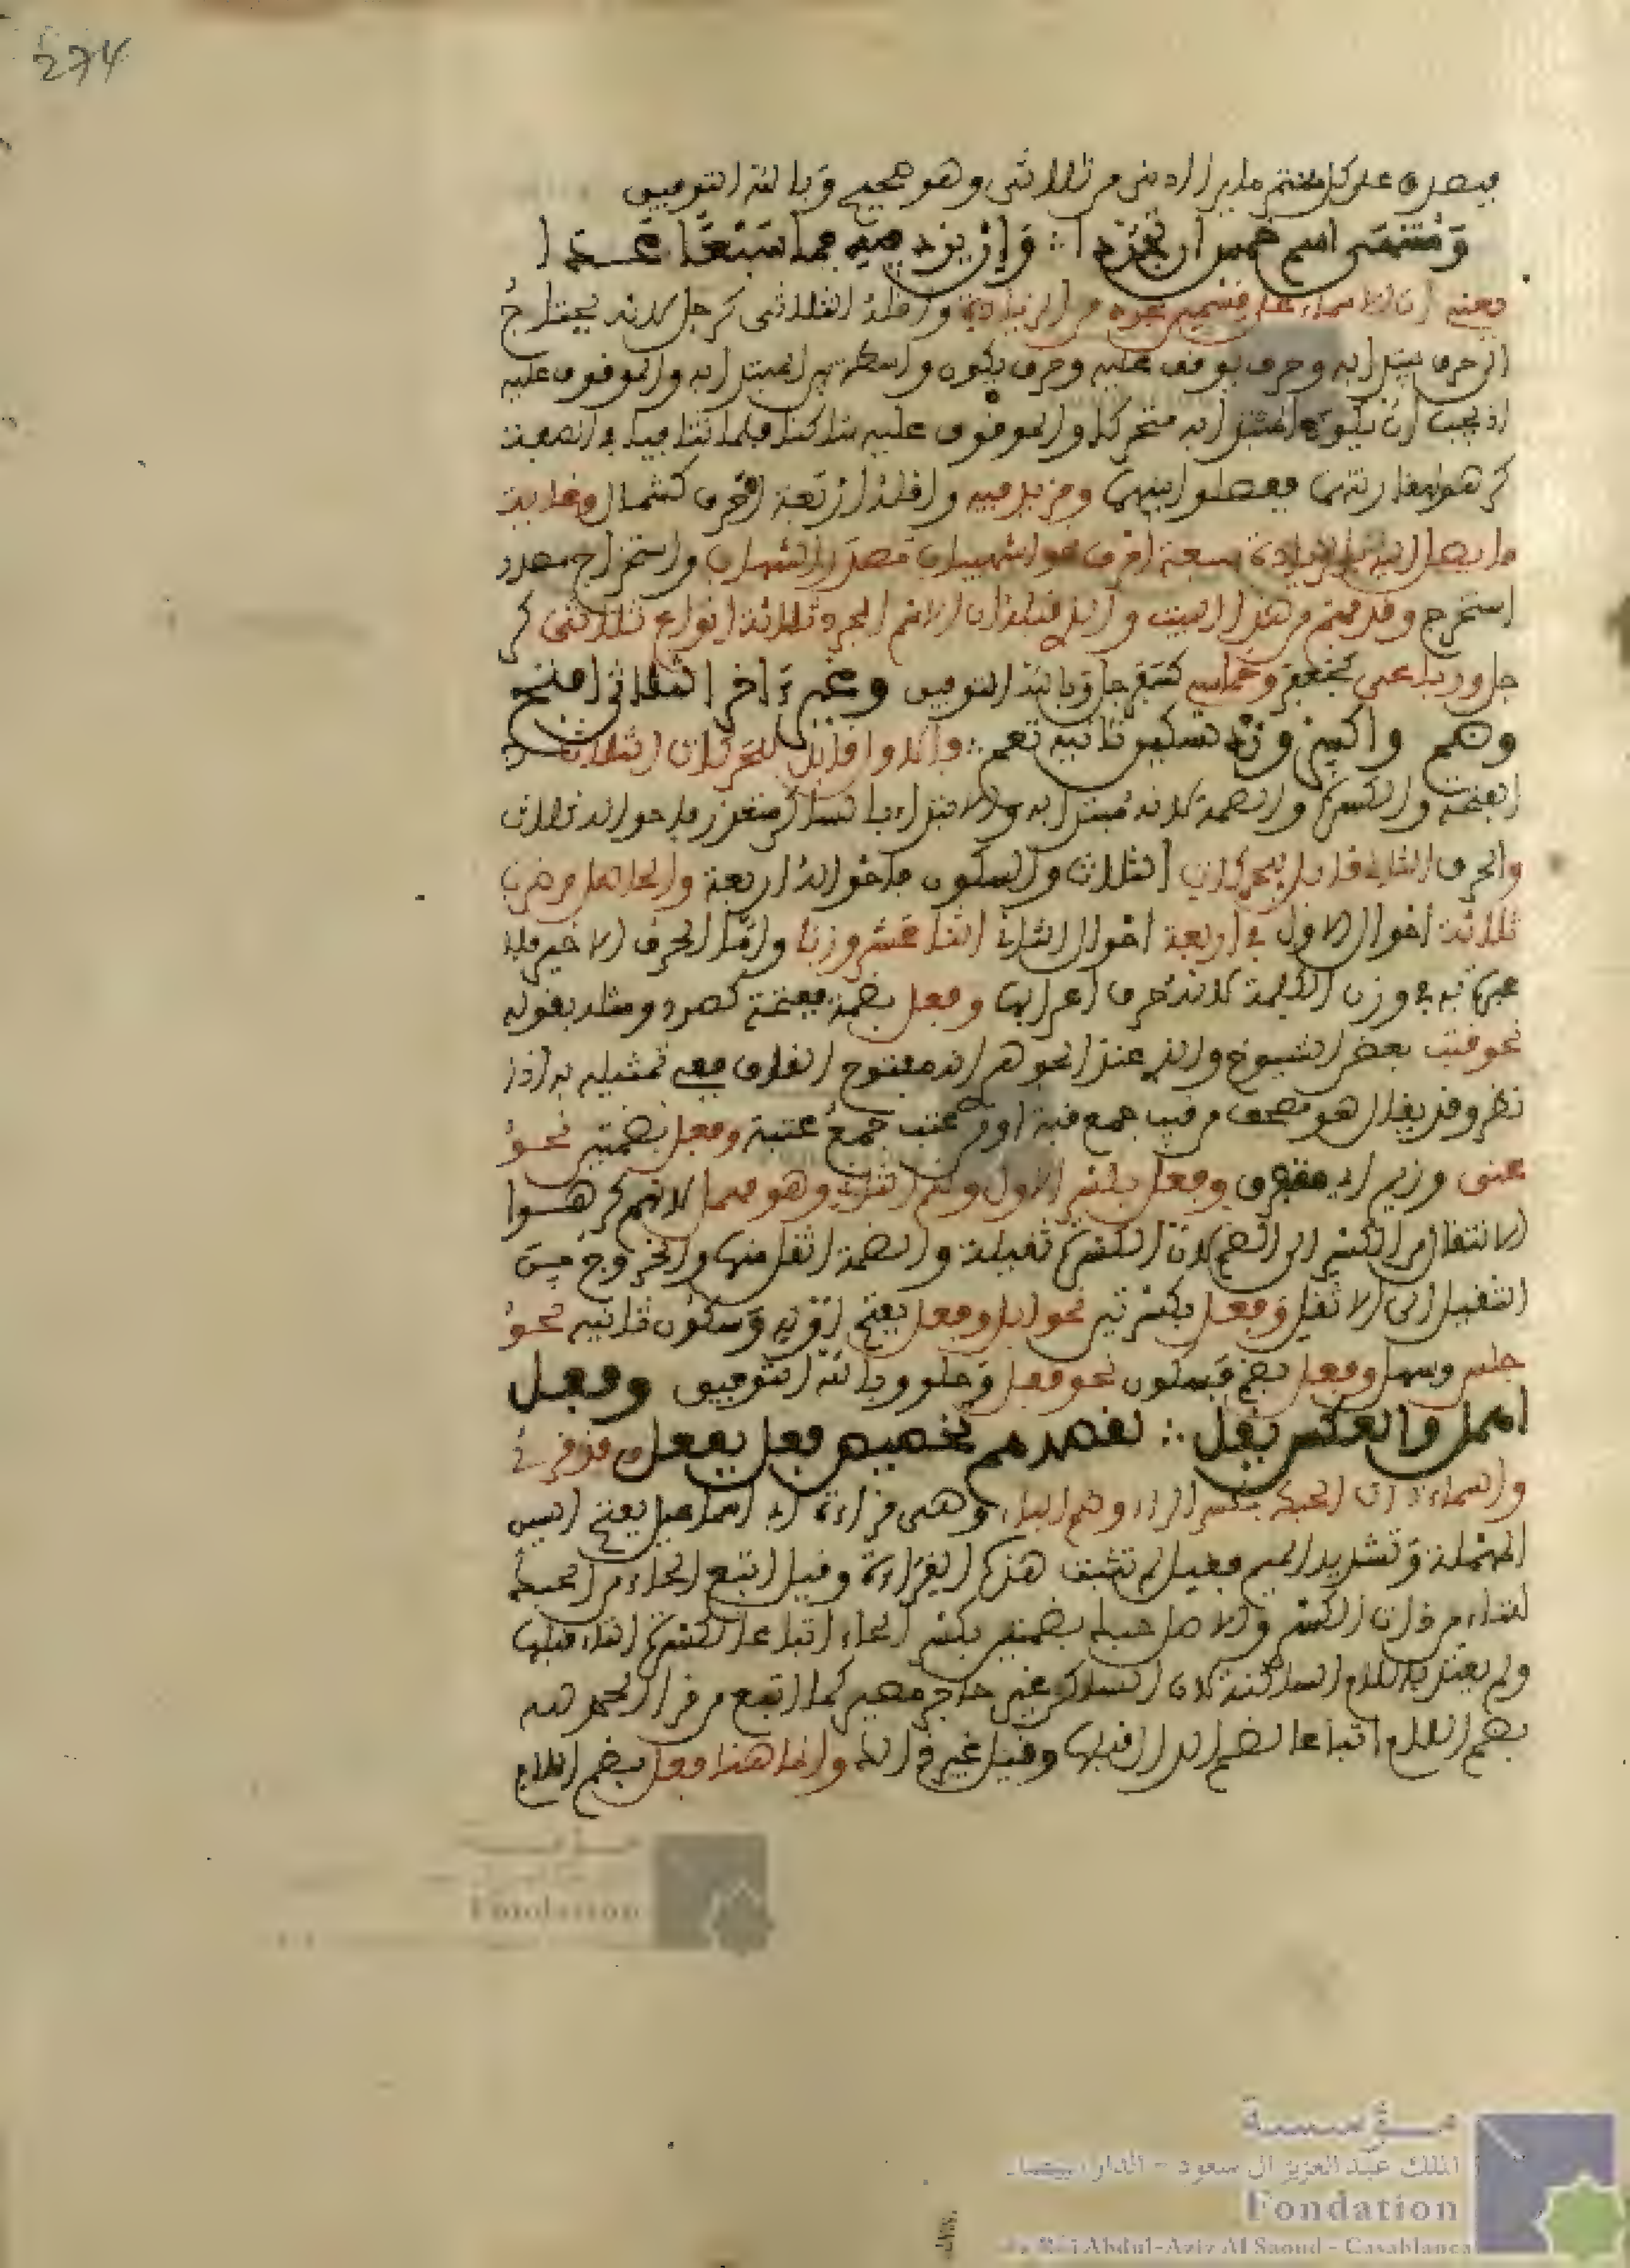 274
فيصدق على كل منهم ما يراد ديني من ثلاثي وهو صحيح وبالله التوفيق
ومنتهى اسم خمس ان تجردا ∴ وان يزد فيه فما سبعا عدا
يعني ان الاسماء على قسمين مجرد من الزيادة واقله الثلاثي كرجل لانه يحتاج
الى حرف يبتدا به وحرف يوقف عليه وحرف يكون واسطة بين المبتدا به والموقوف عليه
اذ يجب ان يكون المبتدا به متحركا والموقوف عليه ساكنا فلما تنافيا في الصفة
كرهوا مقارنتهما ففصلوا بينهما ومزيد فيه واقله اربعة احرف كشمال وغاية
ما يصل اليه بالزيادة سبعة احرف نحو اشهيباب مصدر اشهاب واستخراج مصدر
استخرج وقد فهم من هذا البيت والذي قبله ان الاسم المجرد ثلاثة انواع ثلاثي كر
جل ورباعي كجعفر وخماسي كسفرجل وبالله التوفيق وغير آخر الثلاثي افتح
وضم واكسر وزد تسكين ثانيه تعم ∴ فالاول قابل للحركات الثلاث
الفتحة والكسرة والضمة لانه مبتدا به والابتداء بالساكن متعذر فاحواله ثلاث
والحرف الثاني قابل للحركات الثلاث والسكون فاحواله اربعة والحاصل من ضرب
ثلاثة احوال الاول في اربعة احوال الثاني اثنا عشر وزنا واما الحرف الاخير فلا
عبرة به في وزن الكلمة لانه حرف اعرابها وفعل بضمة ففتحة كصرد ومثله بقوله
نحو بعض الشيوخ والذي عند الجوهر انه مفتوح القاف ففي تمثيله به اذا
نظر وقد يقال هو مصحف من جمع او من عتب جمع عتبة وفعل بضمتين نحو
عنق وزيم اي متفرق وفعل بكسر الاول وضم الثاني وهو مهمل لانهم كرهوا
الانتقال من الكسر الى الضم لان الكسرة ثقيلة والضمة اثقل منها والخروج من
الثقيل الى الاثقل وفعل بكسرتين نحو ابل وفعل بفتح اوله وسكون ثانيه نحو
فلس وسهل وفعل بضم فسكون نحو قفل وحلو وبالله التوفيق وفعل
اهمل والعكس يقل ∴ لقصدهم تخصيص فعل بفعل وقد قرئ
والسماء ذات الحبك بكسر الحاء وضم الباء وهي قراءة ابي السمال بفتح السين
المهملة وتشديد الميم فقيل لم تثبت هذه القراءة وقيل اتبع الحاء من الحبك
لتاء من ذات الكسر والاصل حبك بضمتين بكسر الحاء اتباعا لكسرة التاء قبلها
ولم يعتد باللام الساكنة لان الساكن غير حاجز حصين كما اتبع من قرا الحمد لله
بضم اللام اتباعا لضم الدال قبلها وقيل غير ذلك وانما هذا فعل بضم اللام
مؤسسة
الملك عبد العزيز آل سعود - الدار البيضاء
Fondation
du Roi Abdul-Aziz Al Saoud - Casablanca